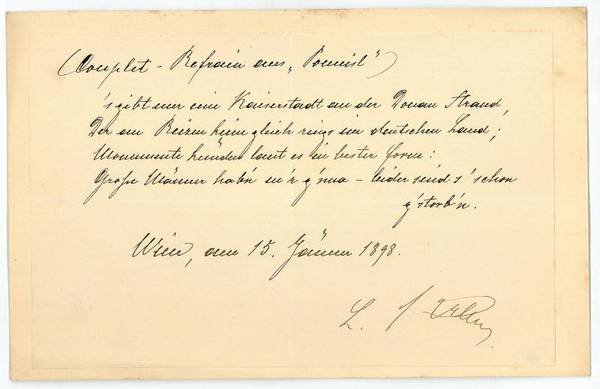 (Couplet - Refrain aus „Pomeisl")
's gibt nur eine Kaiserstadt an der Donau Strand,
Der an Reizen keine gleich rings im deutschen Land;
Monumente künden laut es in bester Form:
Große Männer hab'n m'r g'nua - leider sind s' schon
g'storb'n.
Wien, am 15. Jänner 1898.
L.